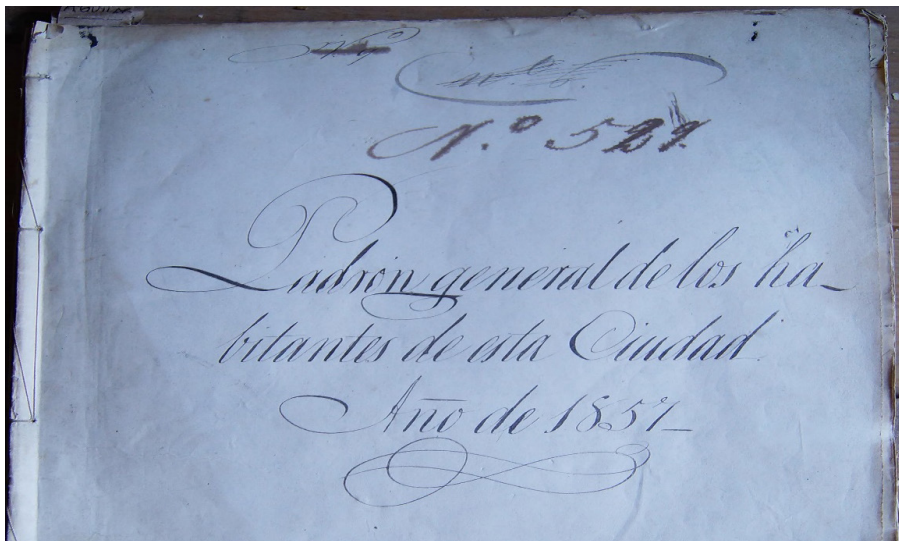 AGUILAR
Padrón general de los ha-
bitantes de esta Ciudad
Año de 1857